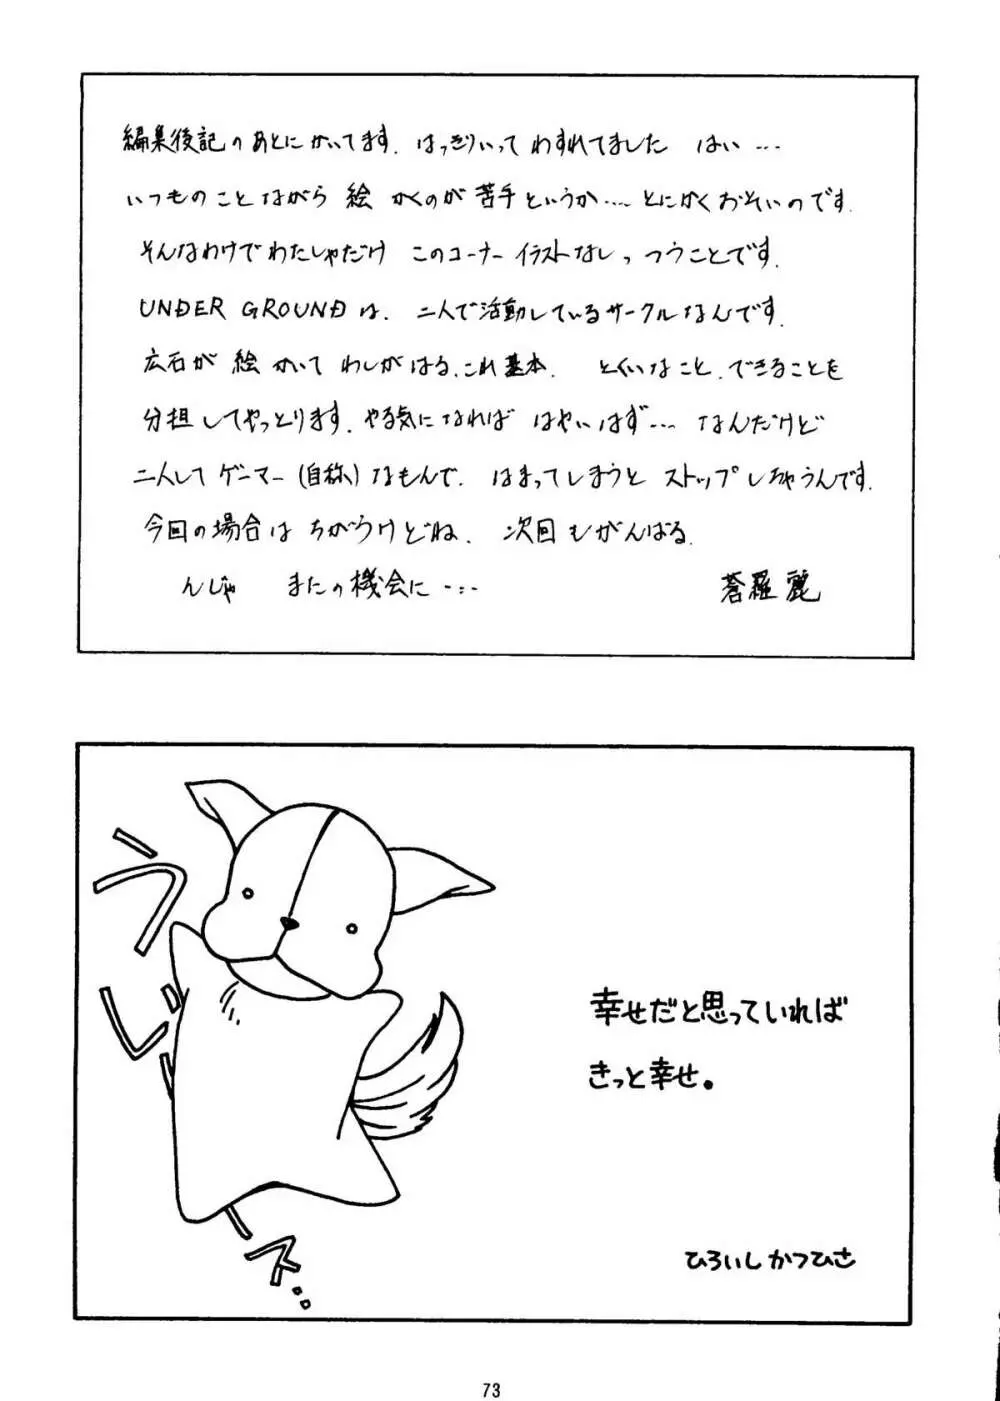 編集後記のあとにかいてます. はっきりいって わすれてました はい…
いつものことながら 絵 かくのが苦手というか…. とにかくおそいのです.
そんなわけでわたしゃだけ このコーナー イラストなしっつうことです.
UNDER GROUNDは、二人で活動しているサークルなんです.
広石が 絵 かいて わしがはる、これ基本. とくいなこと、できることを
分担してやっとります. やる気になれば はやいはず…. なんだけど
二人して ゲーマー(自称)なもんで、はまってしまうと ストップしちゃうんです.
今回の場合は ちがうけどね. 次回もがんばる.
んじゃ またの機会に …
蒼羅 麗
幸せだと思っていれば
きっと幸せ。
ひろいしかつひさ
73